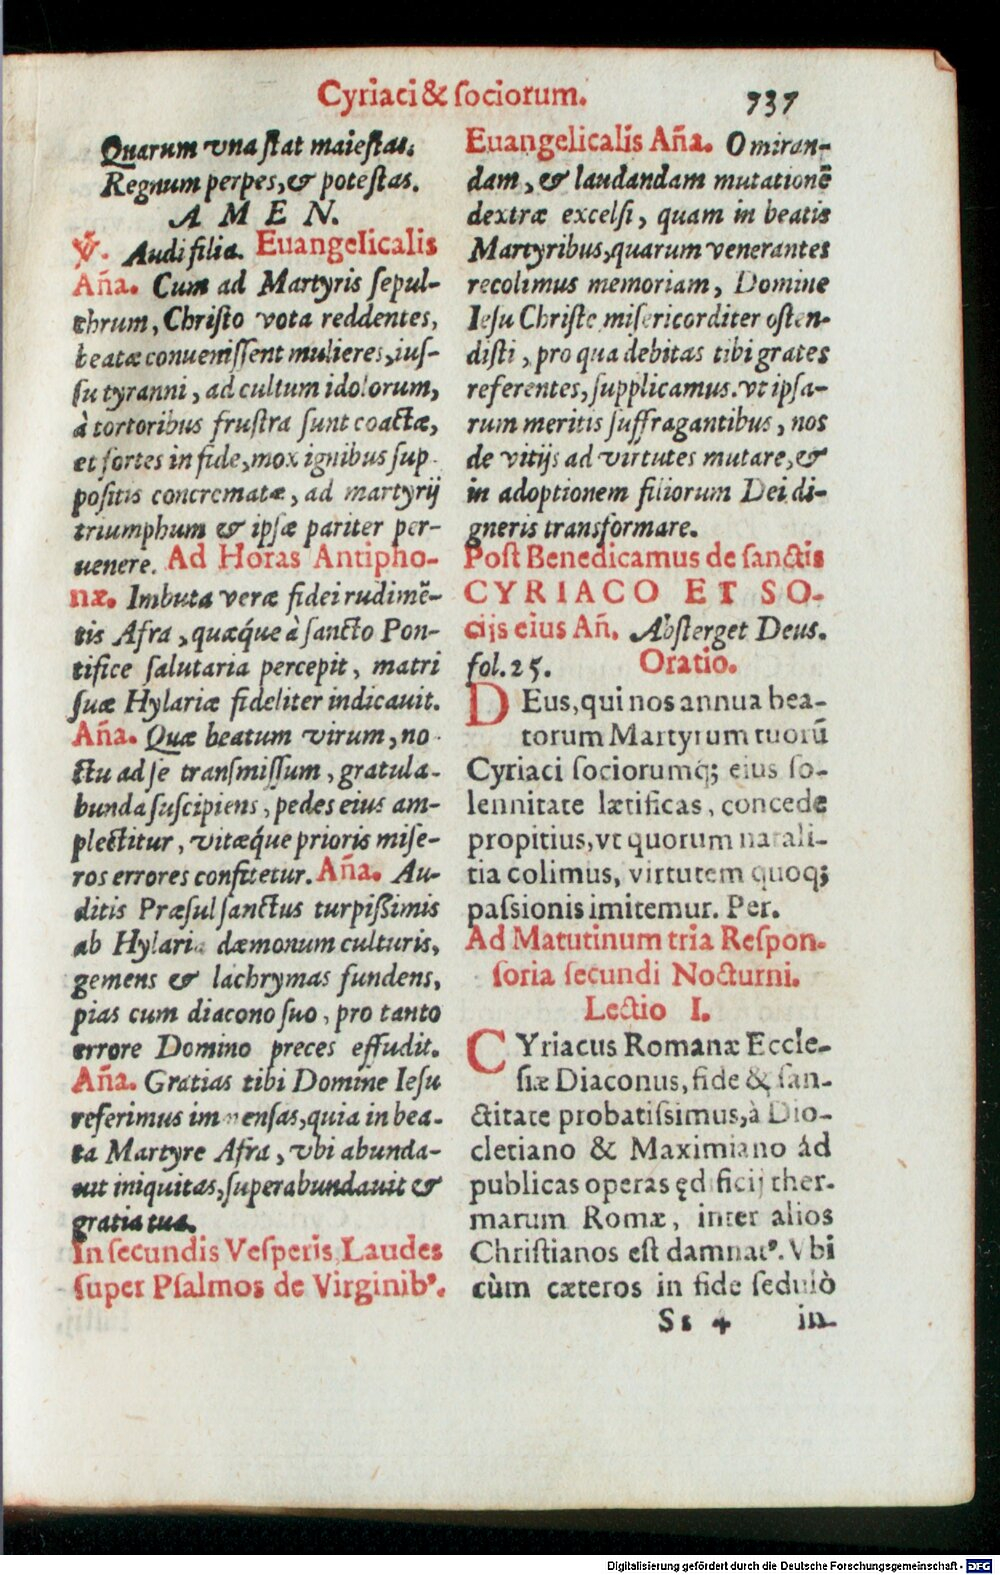 Cyriaci & ſociorum. 737
Quarum vna ſtat maieſtas.
Regnum perpes, & poteſtas.
A M E N.
℣. Audi filia. Euangelicalis
Aña. Cum ad Martyris ſepul-
chrum, Chriſto vota reddentes,
beatæ conueniſſent mulieres, iuſ-
ſu tyranni, ad cultum idolorum,
à tortoribus fruſtra ſunt coactæ,
et fortes in fide, mox ignibus ſup
poſitis concrematæ, ad martyrij
triumphum & ipſæ pariter per-
uenere. Ad Horas Antipho-
næ. Imbuta veræ fidei rudimẽ-
tis Afra, quæq́ue à ſancto Pon-
tifice ſalutaria percepit, matri
ſuæ Hylariæ fideliter indicauit.
Aña. Quæ beatum virum, no
ctu ad ſe tranſmiſſum, gratula-
bunda ſuſcipiens, pedes eius am-
plectitur, vitæq́ue prioris miſe-
ros errores confitetur. Aña. Au-
ditis Præſul ſanctus turpißimis
ab Hylaria dæmonum culturis,
gemens & lachrymas fundens,
pias cum diacono ſuo, pro tanto
errore Domino preces effudit.
Aña. Gratias tibi Domine Ieſu
referimus immenſas, quia in bea-
ta Martyre Afra, vbi abunda-
uit iniquitas, ſuperabundauit &
gratia tua.
In ſecundis Veſperis, Laudes
ſuper Pſalmos de Virginibꝰ.
Euangelicalis Aña. O miran-
dam, & laudandam mutationẽ
dextræ excelſi, quam in beatis
Martyribus, quarum venerantes
recolimus memoriam, Domine
Ieſu Chriſte miſericorditer oſten-
diſti, pro qua debitas tibi grates
referentes, ſupplicamus. vt ipſa-
rum meritis ſuffragantibus, nos
de vitijs ad virtutes mutare, &
in adoptionem filiorum Dei di-
gneris transformare.
Poſt Benedicamus de ſanctis
CYRIACO ET SO-
cijs eius Añ. Abſterget Deus.
fol. 25. Oratio.
DEus, qui nos annua bea-
torum Martyrum tuorũ
Cyriaci ſociorumq́; eius ſo-
lennitate lætificas, concede
propitius, vt quorum natali-
tia colimus, virtutem quoq;
paſsionis imitemur. Per.
Ad Matutinum tria Reſpon-
ſoria ſecundi Nocturni.
Lectio I.
CYriacus Romanæ Eccle-
ſiæ Diaconus, fide & ſan-
ctitate probatiſsimus, à Dio-
cletiano & Maximiano ád
publicas operas ędificij ther-
marum Romæ, inter alios
Chriſtianos eſt damnatꝰ. Vbi
cùm cæteros in fide ſedulò
Ss 4 in-
Digitalisierung gefördert durch die Deutsche Forschungsgemeinschaft - DFG